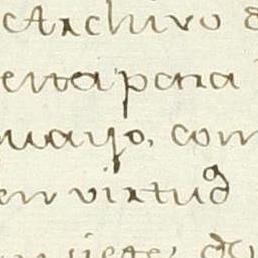 Archivo d
enta para
uayo, com
en virtud